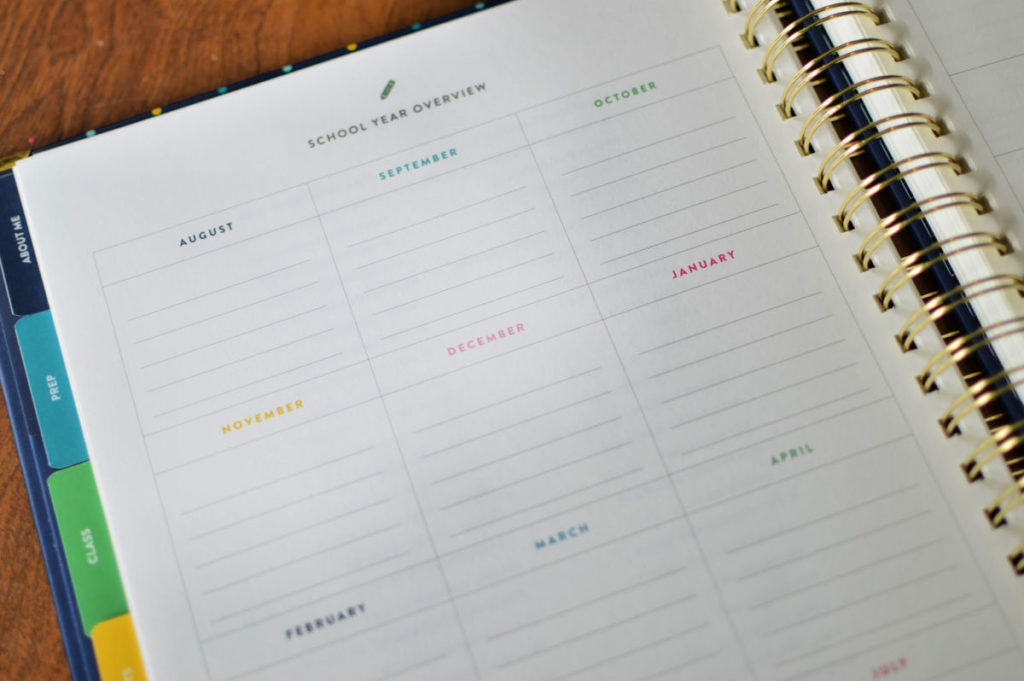 SCHOOL YEAR OVERVIEW
AUGUST
SEPTEMBER
OCTOBER
NOVEMBER
DECEMBER
JANUARY
FEBRUARY
MARCH
APRIL
JULY
ABOUT ME
PREP
CLASS